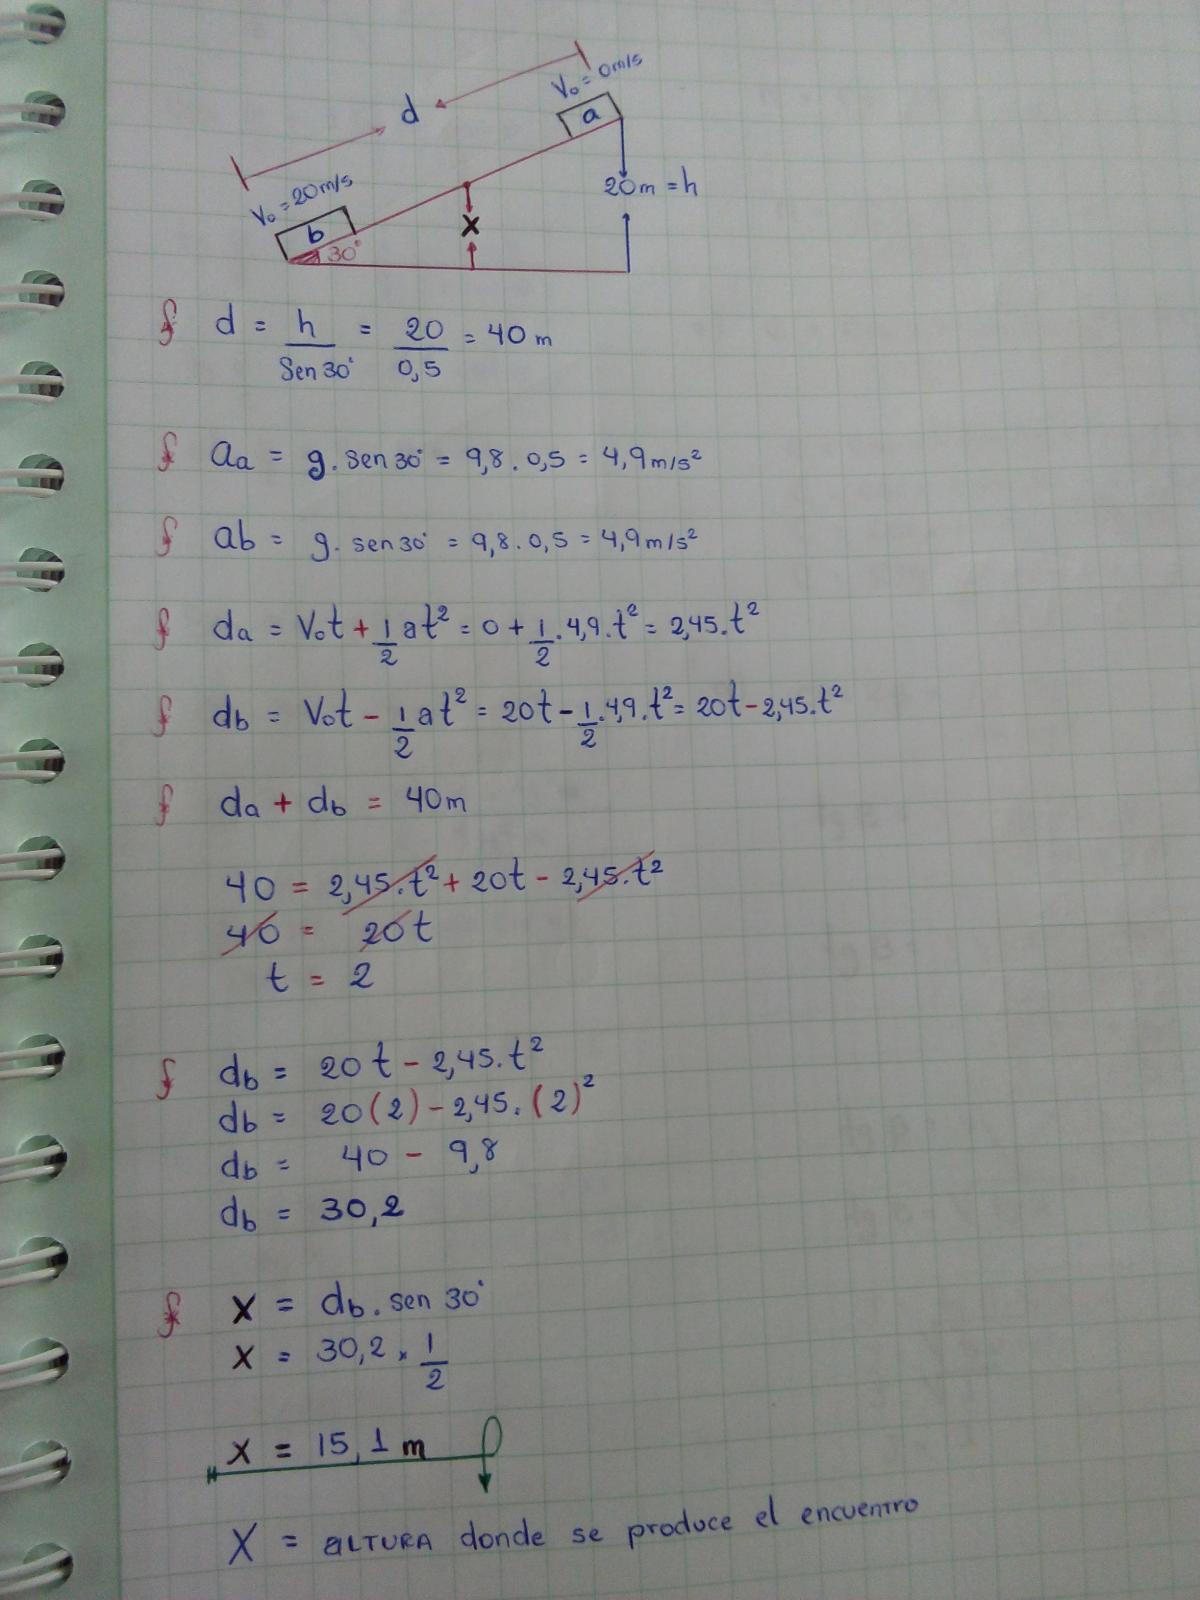 d
V₀ = 0m/s
a
V₀ = 20m/s
20m = h
b
30°
X
d = h/Sen30° = 20/0,5 = 40m
aa = g.sen30° = 9,8.0,5 = 4,9m/s²
ab = g.sen30° = 9,8.0,5 = 4,9m/s²
da = V₀t + 1/2at² = 0 + 1/2.4,9.t² = 2,45.t²
db = V₀t - 1/2at² = 20t - 1/2.4,9.t² = 20t - 2,45.t²
da + db = 40m
40 = 2,45.t² + 20t - 2,45.t²
40 = 20t
t = 2
db = 20t - 2,45.t²
db = 20(2) - 2,45.(2)²
db = 40 - 9,8
db = 30,2
X = db.sen30°
X = 30,2 x 1/2
X = 15,1m
X = ALTURA donde se produce el encuentro